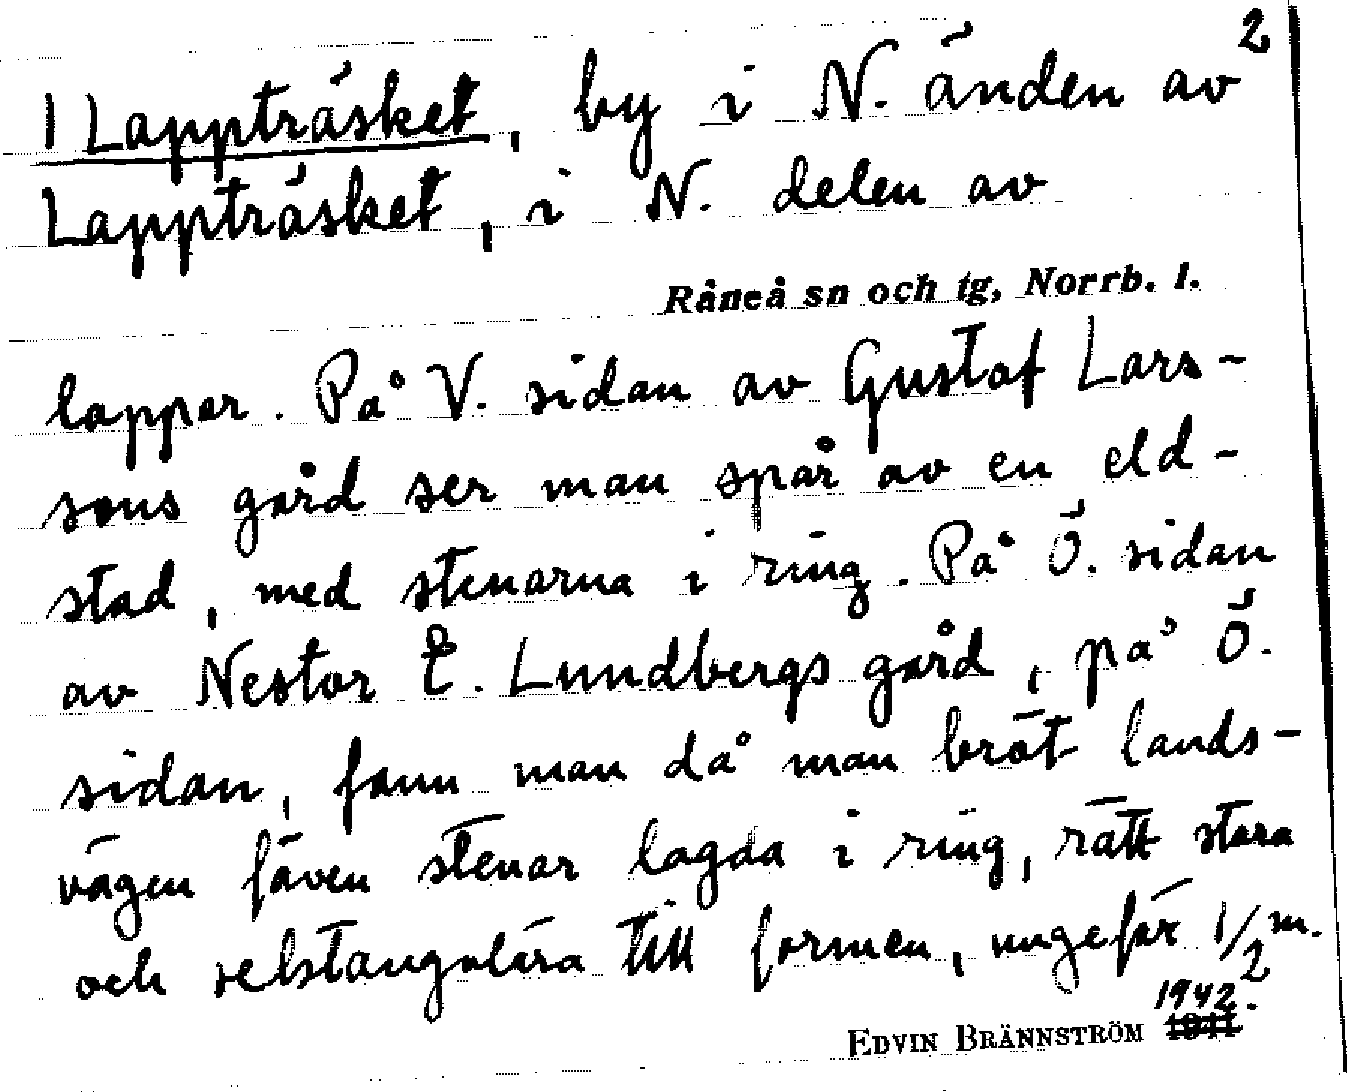 2
1 Lappträsket, by i N. änden av
Lappträsket, i N. delen av
Råneå sn och tg, Norrb. l.
lappar. På V. sidan av Gustaf Lars-
sons gård ser man spår av en eld-
stad, med stenarna i ring. På Ö. sidan
av Nestor E. Lundbergs gård, på Ö.
sidan, fann man då man bröt lands-
vägen även stenar lagda i ring, rätt stora
och rektangulära till formen, ungefär 1/2 m.
EDVIN BRÄNNSTRÖM 1942.